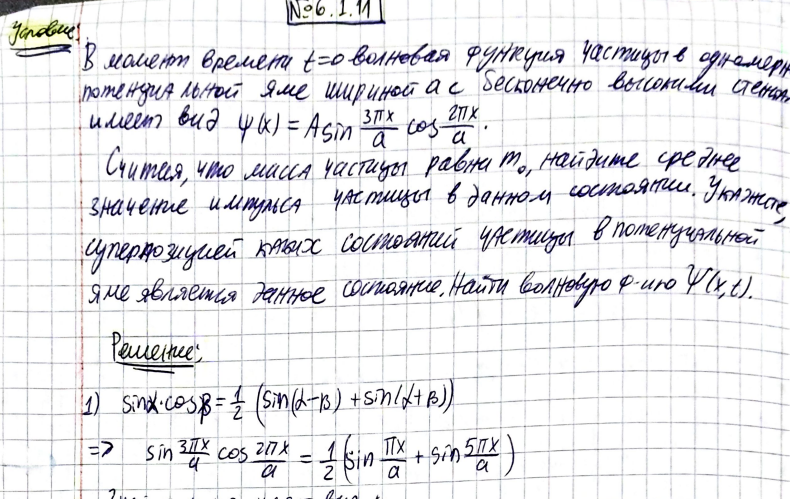 №6.1.11
Условие:
В момент времени t=0 волновая функция частицы в одномерн
потенциальной яме шириной a с бесконечно высокими стенка
имеет вид ψ(x) = A sin 3πx/a cos 2πx/a.
Считая, что масса частицы равна m₀, найдите среднее
значение импульса частицы в данном состоянии. Укажите,
суперпозицией каких состояний частицы в потенциальной
яме является данное состояние. Найти волновую ф-ию Ψ(x,t).
Решение:
1) sinα·cosβ = 1/2 (sin(α-β) + sin(α+β))
=> sin 3πx/a cos 2πx/a = 1/2 (sin πx/a + sin 5πx/a)